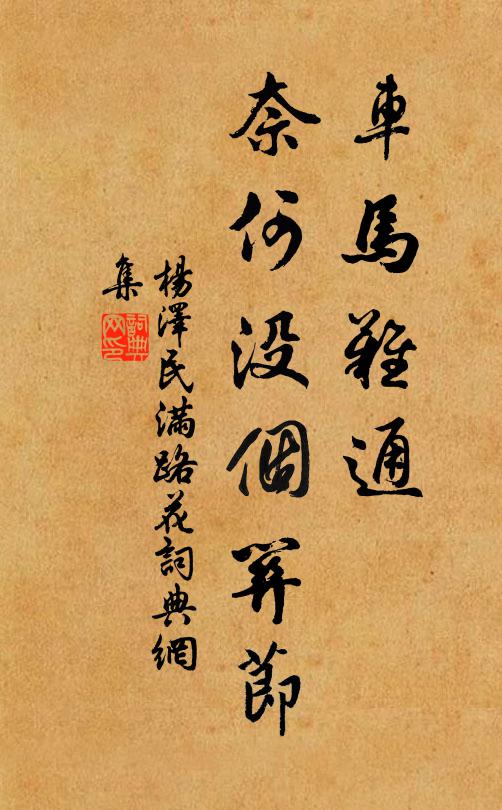 車馬難通
奈何没個關節
楊澤民滿路花詞典網
集
詞典
网印